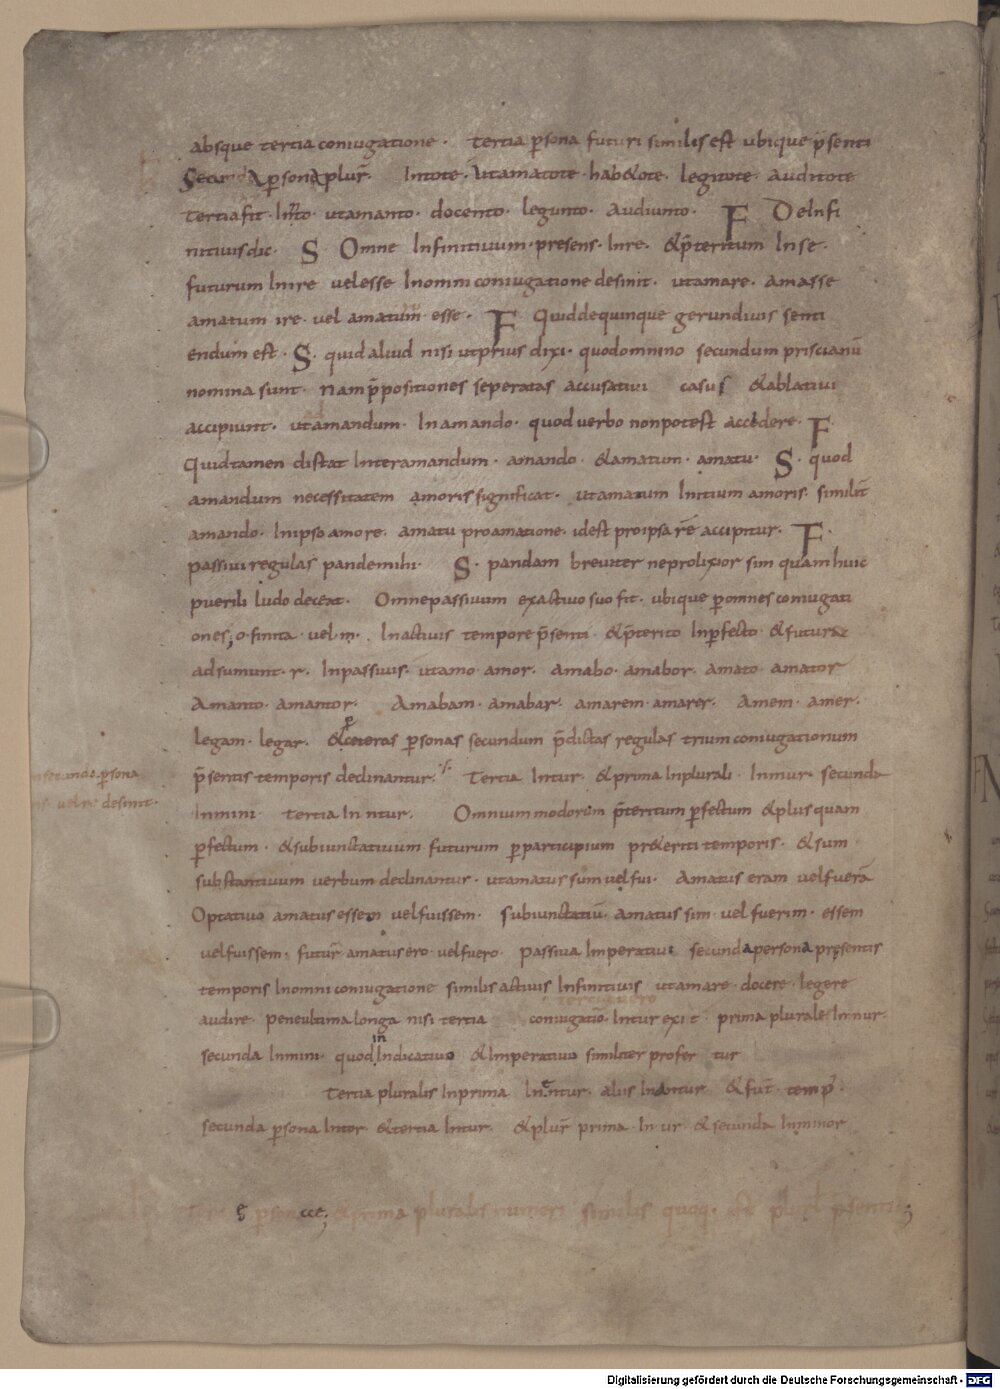 absque tertia coniugatione · Tertia p̄sona futuri similis est ubique p̄senti
Secunda p̄sona plur̄ · In tote · ut amatote · hab&ote · legitote · auditote
Tertia fit · In to · ut amanto · docento · legunto · Audiunto · F De infi
nitiuis dic · S · Omne Infinitiuum · presens · In re · & p̄teritum In se ·
futurum In ire vel esse In omni coniugatione desinit · ut amare · Amasse
amatum ire · vel amatum esse · F Quid de quinque gerundiuis senti
endum est · S · quid aliud nisi ut prius dixi · quod omnino secundum priscianū
nomina sunt · Nam p̄positiones seperatas accusatiui casus & ablatiui
accipiunt · ut ad amandum · In amando · quod uerbo non potest accedere · F ·
Quid tamen distat Inter amandum · amando · & amatum · amatu · S · quod
amandum necessitatem amoris significat · ut amatum Initium amoris · simil̄
amando · In ipso amore · amatu pro amatione · id est pro ipsa rē accipitur · F ·
passiui regulas pande mihi · S · pandam breuiter ne prolixior sim quam huic
puerili ludo deceat · Omne passiuum ex actiuo suo fit · ubique p̄ omnes coniugati
ones; o · finita · vel · m · In actiuis tempore p̄senti · & p̄terito Inp̄fecto · & futura
adsumunt · r · In passiuis · ut amo amor · Amabo · amabor · amato · amator
Amanto · amantor · Amabam · amabar · amarem · amarer · Amem · amer ·
legam · legar · & ceteras p̄sonas secundum p̄dictas regulas trium coniugationum
p̄sentis temporis declinantur · Tertia In tur · & prima In plurali · In mur · secunda
In secunda p̄sona
vel re desinit ·
In mini · Tertia In ntur · Omnium modorum p̄teritum p̄fectum & plus quam
p̄fectum · & subiunctatiuum futurum p̄ participium pr&eriti temporis · & sum
substantiuum uerbum declinantur · ut amatus sum vel fui · Amatus eram vel fuerā
Optatiuo amatus essem vel fuissem · Subiunctatiū · amatus sim · vel fuerim · essem
vel fuissem · futur̄ amatus ero · vel fuero · passiua Imperatiui secunda persona pręsentis
temporis In omni coniugatione similis actiuis Infinitiuis ut amare · docere · legere
tertia uero
audire · peneultima longa nisi tertia coniugatio · In tur exi t · prima plurale In mur ·
secunda In mini · quod in Indicatiuo & Imperatiuo similiter profer tur
Tertia pluralis In prima In entur · aliis In antur & fut̄ · temp̄ ·
secunda p̄sona In tor & tertia In tur · & plur̄ prima · In ur & secunda In minor
p̄sonae; & prima pluralis numeri similis quoq · est plural p̄senti;
Digitalisierung gefördert durch die Deutsche Forschungsgemeinschaft - DFG